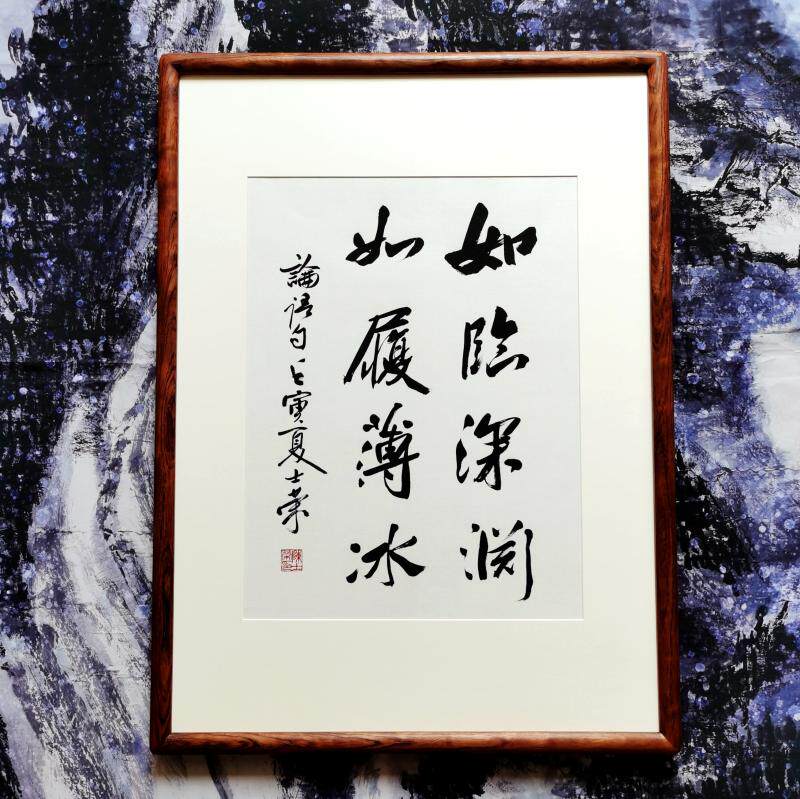 如臨深渊
如履薄冰
論语句壬寅夏士荣